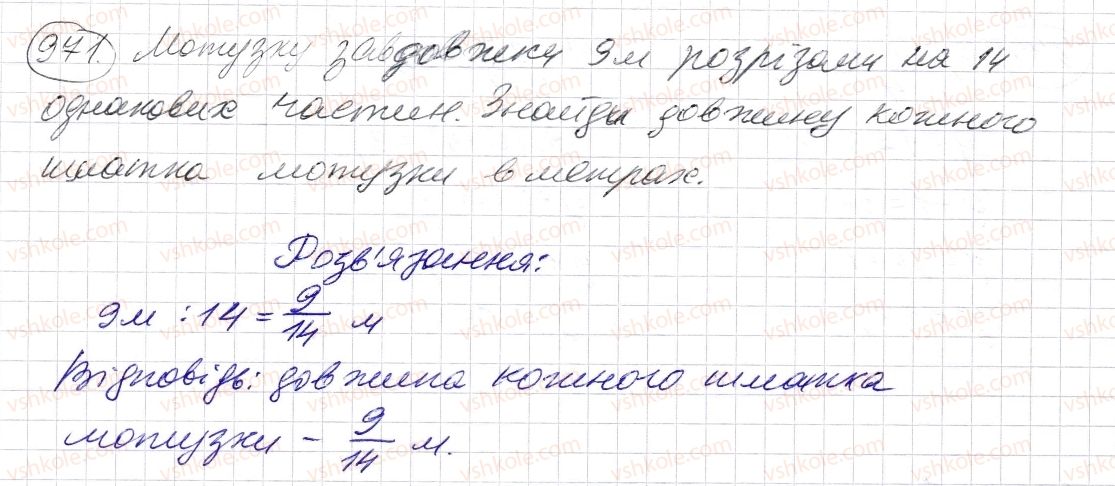 971. Мотузку завдовжки 9м розрізами на 14
однакових частин. Знайди довжину кожного
шматка мотузки в метрах.
Розв'язання:
9м : 14 = 9/14 м
Відповідь: довжина кожного шматка
мотузки – 9/14 м.